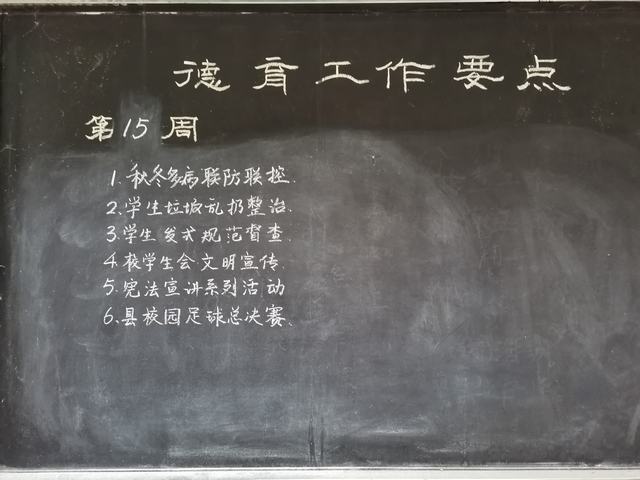 德育工作要点
第15周
1.秋冬多病联防联控.
2.学生垃圾乱扔整治.
3.学生发式规范督查.
4.校学生会文明宣传.
5.宪法宣讲系列活动
6.县校园足球总决赛、